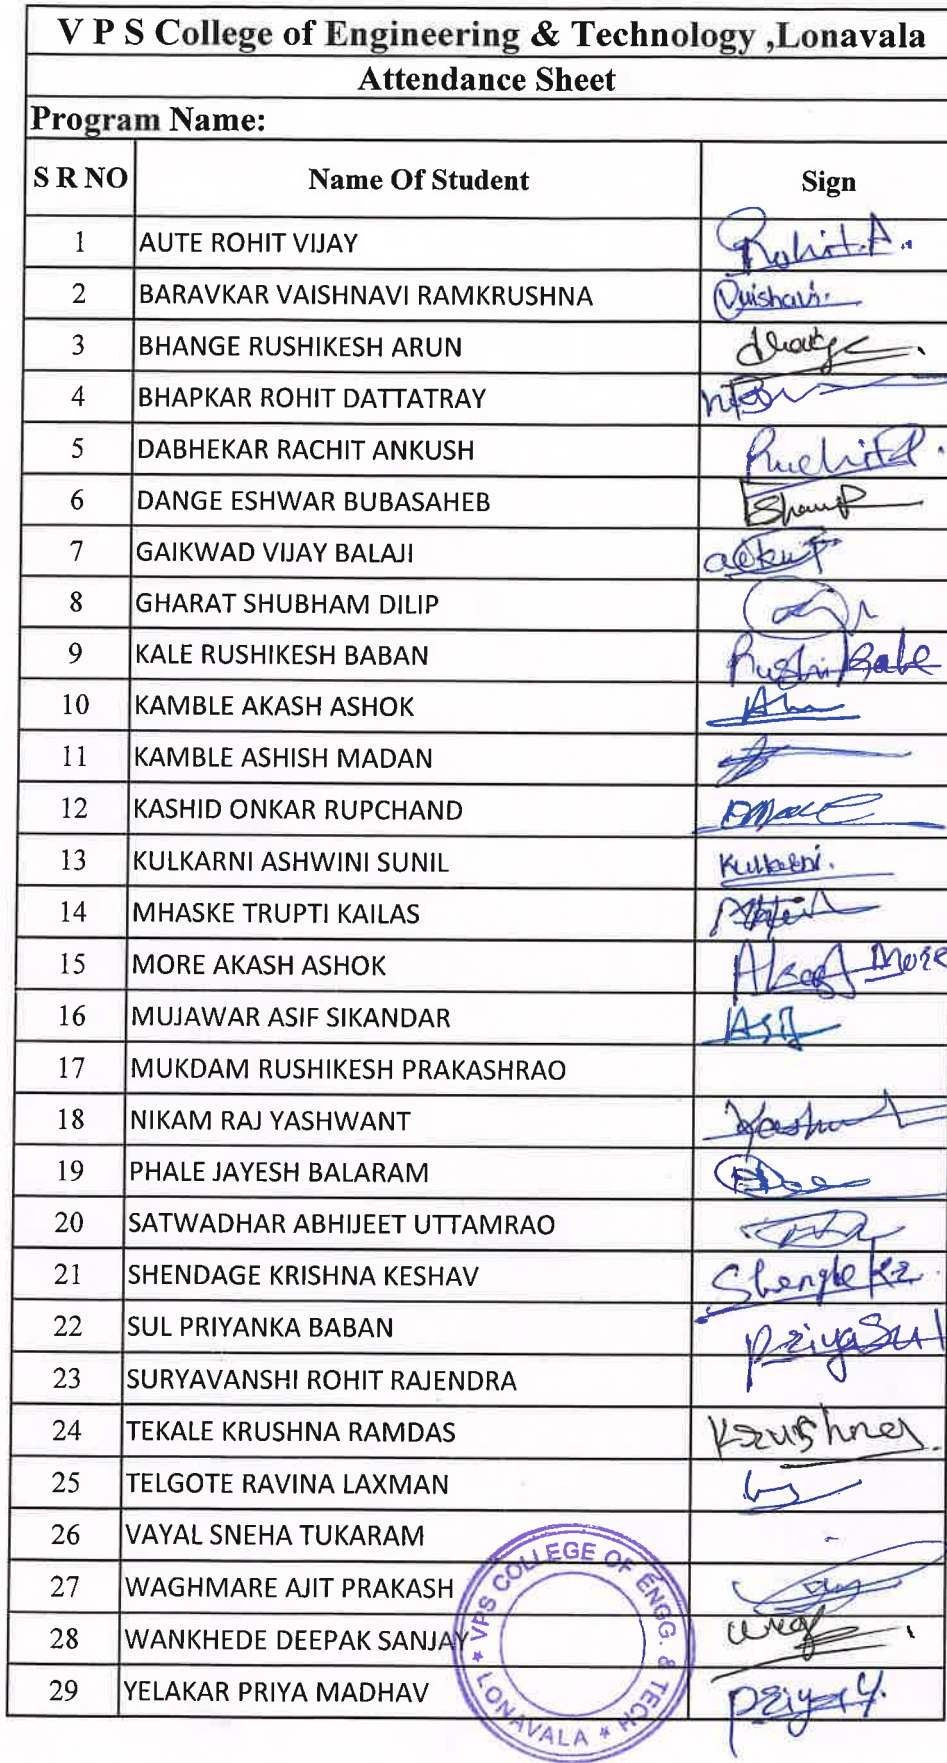 V P S College of Engineering & Technology ,Lonavala
Attendance Sheet
Program Name:
S R NO Name Of Student Sign
1 AUTE ROHIT VIJAY Rohit.A.
2 BARAVKAR VAISHNAVI RAMKRUSHNA
3 BHANGE RUSHIKESH ARUN
4 BHAPKAR ROHIT DATTATRAY
5 DABHEKAR RACHIT ANKUSH
6 DANGE ESHWAR BUBASAHEB
7 GAIKWAD VIJAY BALAJI
8 GHARAT SHUBHAM DILIP
9 KALE RUSHIKESH BABAN
10 KAMBLE AKASH ASHOK
11 KAMBLE ASHISH MADAN
12 KASHID ONKAR RUPCHAND
13 KULKARNI ASHWINI SUNIL Kulkarni.
14 MHASKE TRUPTI KAILAS
15 MORE AKASH ASHOK Akash More
16 MUJAWAR ASIF SIKANDAR Asif
17 MUKDAM RUSHIKESH PRAKASHRAO
18 NIKAM RAJ YASHWANT
19 PHALE JAYESH BALARAM
20 SATWADHAR ABHIJEET UTTAMRAO
21 SHENDAGE KRISHNA KESHAV
22 SUL PRIYANKA BABAN Priya Sul
23 SURYAVANSHI ROHIT RAJENDRA
24 TEKALE KRUSHNA RAMDAS Krushna
25 TELGOTE RAVINA LAXMAN
26 VAYAL SNEHA TUKARAM -
27 WAGHMARE AJIT PRAKASH
28 WANKHEDE DEEPAK SANJAY
29 YELAKAR PRIYA MADHAV Priya Y.
* VPS COLLEGE OF ENGG. & TECH * LONAVALA